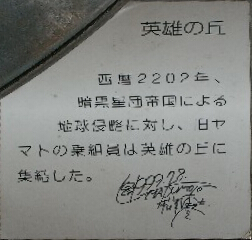 英雄の丘
西暦2202年、
暗黒星団帝国による
地球侵略に対し、旧ヤ
マトの乗組員は英雄の丘に
集結した。